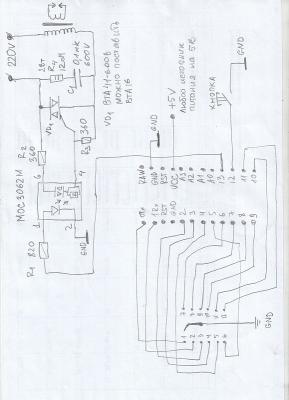 220V
2Вт
R4
120м
C1
0,1мк
600V
VD1 BTA41-600B
МОЖНО ПОСТАВИТЬ
BTA16
VD1
R3
360
R2
360
MOC3062M
6
4
1
2
R1 820
GND
Любой источник
питания на 5В
+5V
GND
КНОПКА
GND
RAW
GND
RST
VCC
A3
A2
A1
A0
13
12
11
10
RST
GND
2
3
4
5
6
7
8
9
1
2
3
4
5
6
GND